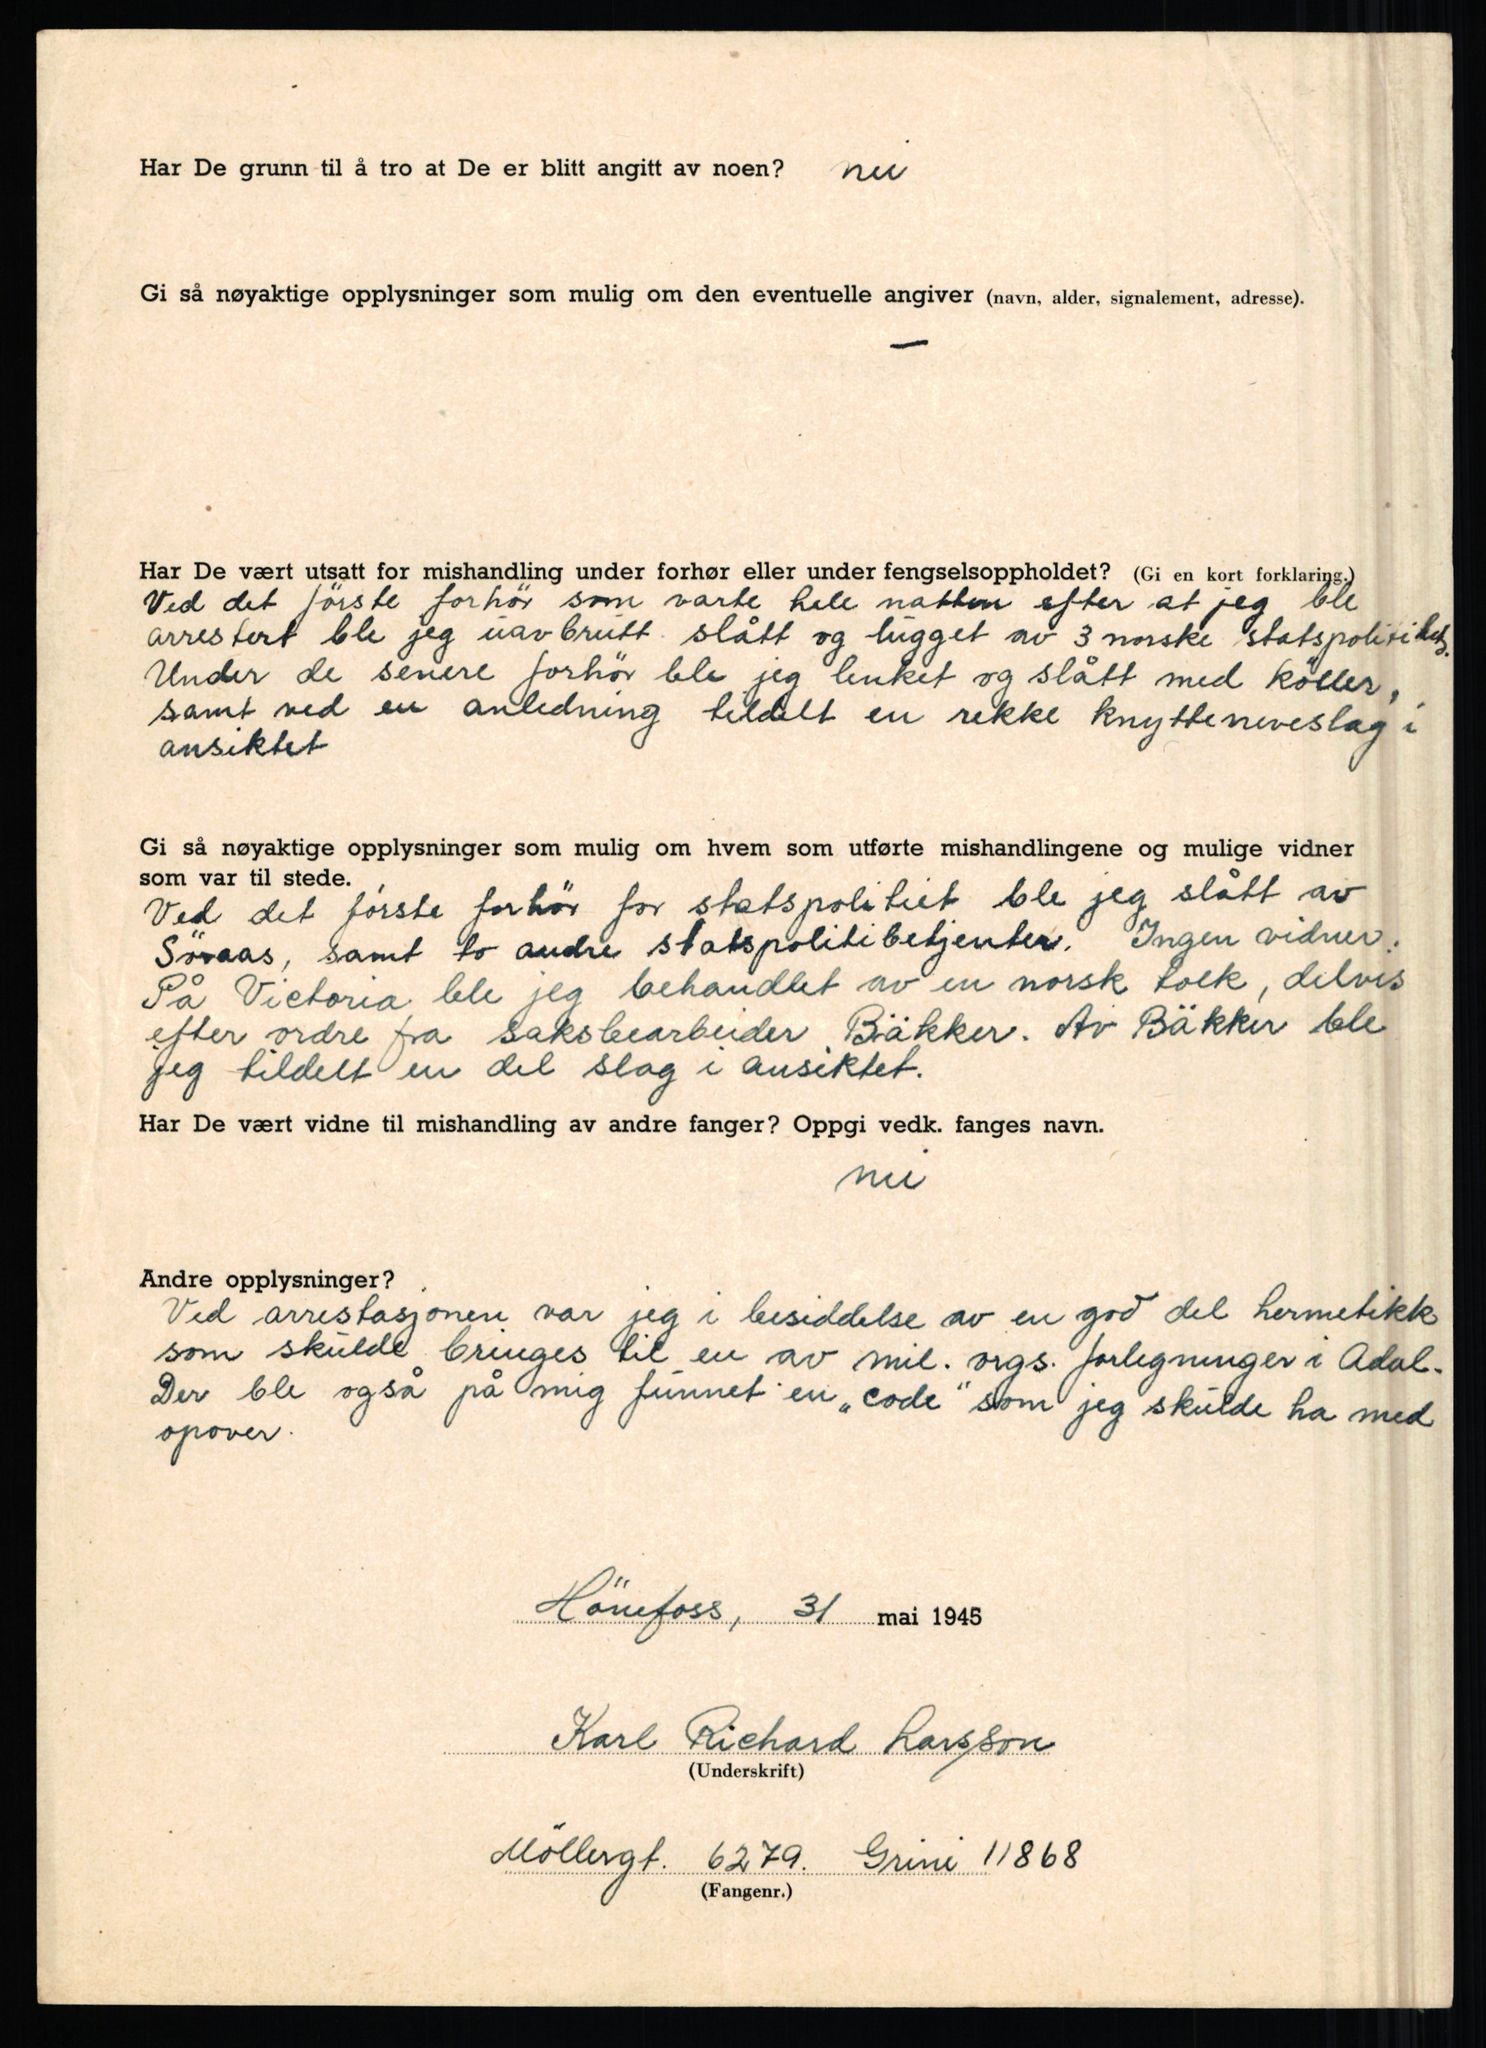 Har De grunn til å tro at De er blitt angitt av noen? nei
Gi så nøyaktige opplysninger som mulig om den eventuelle angiver (navn, alder, signalement, adresse).
—
Har De vært utsatt for mishandling under forhør eller under fengselsoppholdet? (Gi en kort forklaring.)
Ved det förste forhör som varte hele natten efter at jeg ble
arrestert ble jeg uavbrutt slått og lugget av 3 norske statspoliti
Under de senere forhör ble jeg lenket og slått med köller,
samt ved en anledning tildelt en rekke knytteneveslag i
ansiktet
Gi så nøyaktige opplysninger som mulig om hvem som utførte mishandlingene og mulige vidner
som var til stede.
Ved det förste forhör for statspolitiet ble jeg slått av
Söraas, samt to andre statspolitibetjenter. Ingen vidner.
På Victoria ble jeg behandlet av en norsk tolk, delvis
efter ordre fra saksbearbeider Bäkker. Av Bäkker ble
jeg tildelt en del slag i ansiktet.
Har De vært vidne til mishandling av andre fanger? Oppgi vedk. fanges navn.
nei
Andre opplysninger?
Ved arrestasjonen var jeg i besiddelse av en god del hermetikk
som skulde bringes til en av mil. orgs. forlegninger i Ådal.
Der ble også på mig funnet en „code" som jeg skulde ha med
opover.
Hönefoss, 31 mai 1945
Karl Richard Larsson
(Underskrift)
Möllergt. 6279. Grini 11868
(Fangenr.)